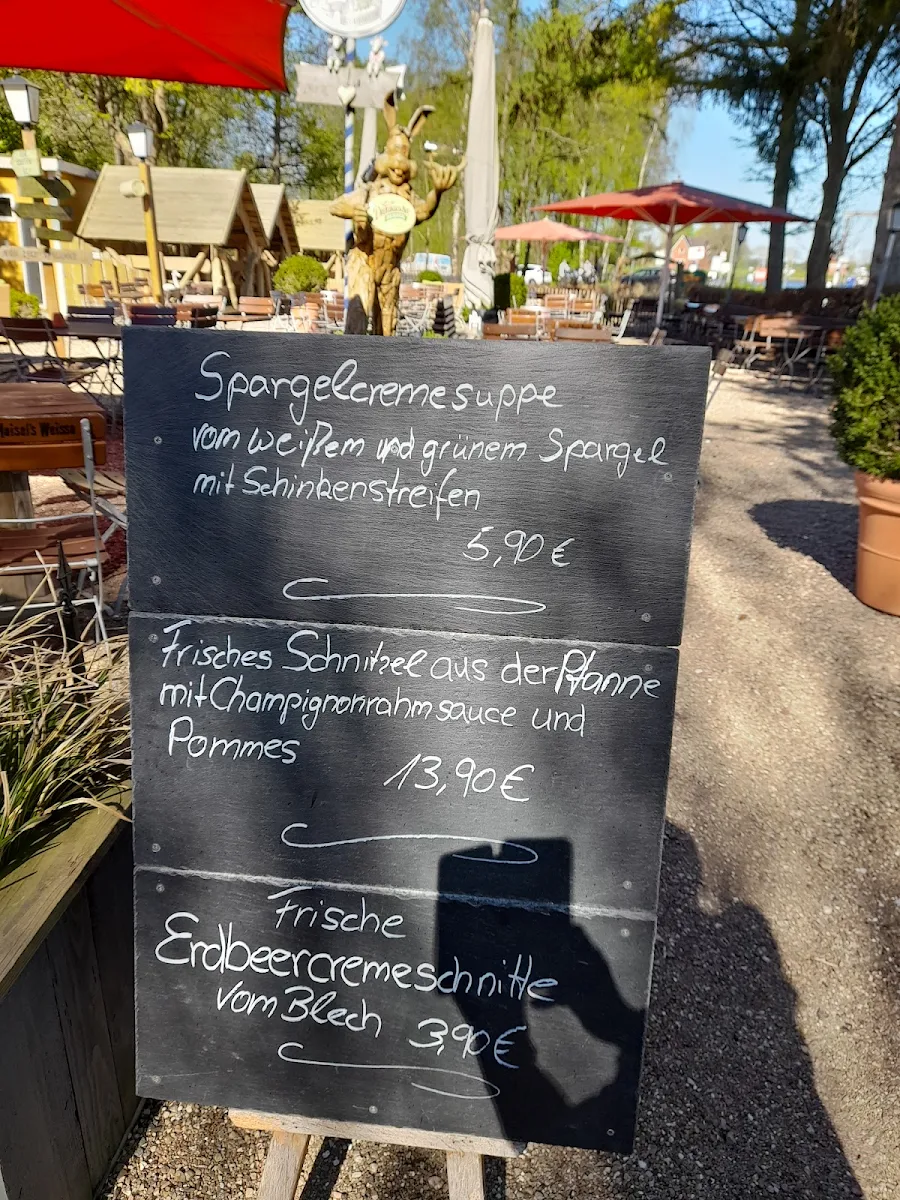 Maisel's Weisse
Spargelcremesuppe
vom weißem und grünem Spargel
mit Schinkenstreifen
5,90 €
Frisches Schnitzel aus der Pfanne
mit Champignonrahmsauce und
Pommes
13,90 €
Frische
Erdbeercremeschnitte
vom Blech 3,90 €